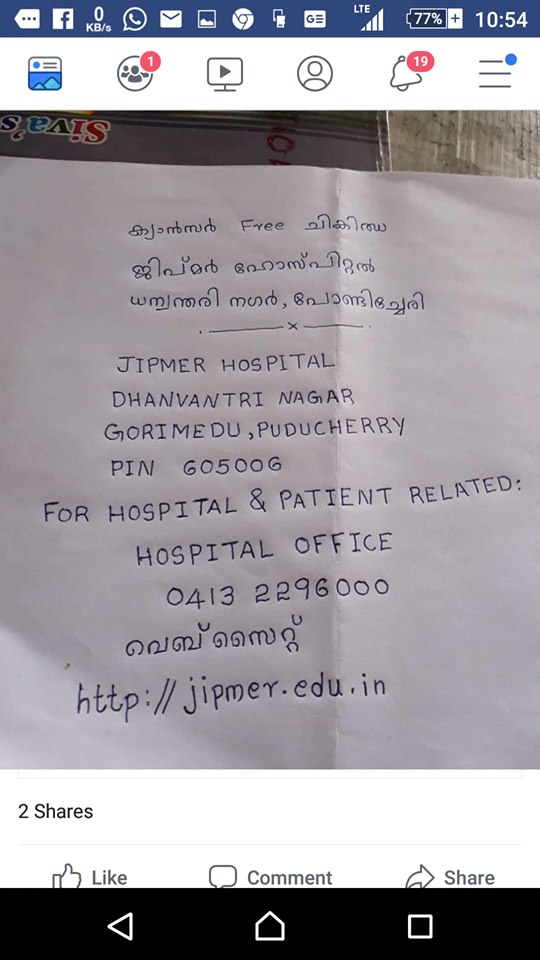 0
KB/s
LTE
77%
10:54
1
19
Siva's
ക്യാൻസർ Free ചികിത്സ
ജിപ്മർ ഹോസ്പിറ്റൽ
ധന്വന്തരി നഗർ, പോണ്ടിച്ചേരി
JIPMER HOSPITAL
DHANVANTRI NAGAR
GORIMEDU, PUDUCHERRY
PIN 605006
FOR HOSPITAL & PATIENT RELATED:
HOSPITAL OFFICE
0413 2296000
വെബ്സൈറ്റ്
http://jipmer.edu.in
2 Shares
Like Comment Share